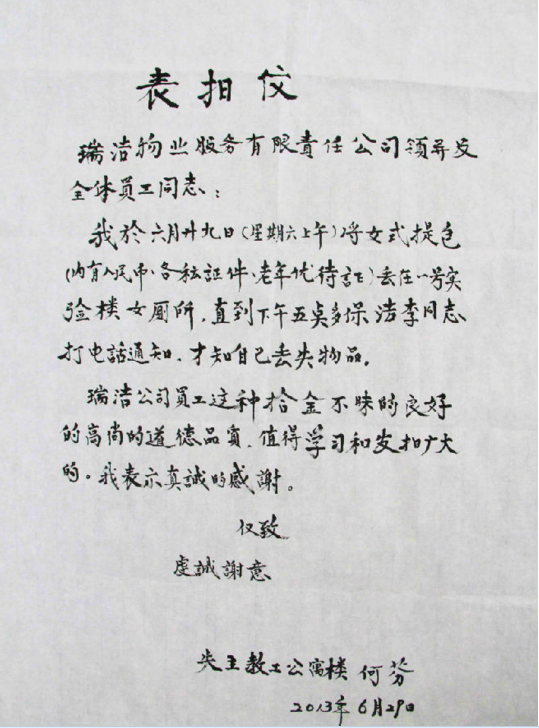 表扬信
瑞洁物业服务有限責任公司领导及
全体員工同志：
我於六月廿九日(星期六上午)将女式提包
(内有人民币、各种証件、老年优待証)丢在一号实
验楼女厕所，直到下午五点多保洁李同志
打电話通知，才知自己丢失物品。
瑞洁公司員工这种拾金不昧的良好
的高尚的道德品質，值得学习和发扬广大
的。我表示真誠的感謝。
仅致
虔誠謝意
失主教工公寓楼 何芬
2013年6月29日